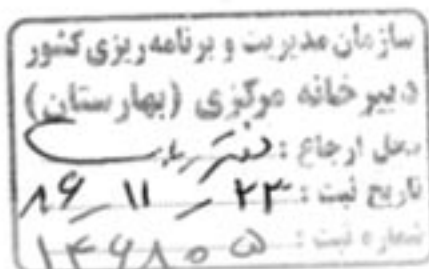 سازمان مدیریت و برنامه ریزی کشور
دبیرخانه مرکزی (بهارستان)
محل ارجاع : دفتر
تاریخ ثبت : ۲۳ / ۱۱ / ۸۶
شماره ثبت : ۱۴۶۸۰۵